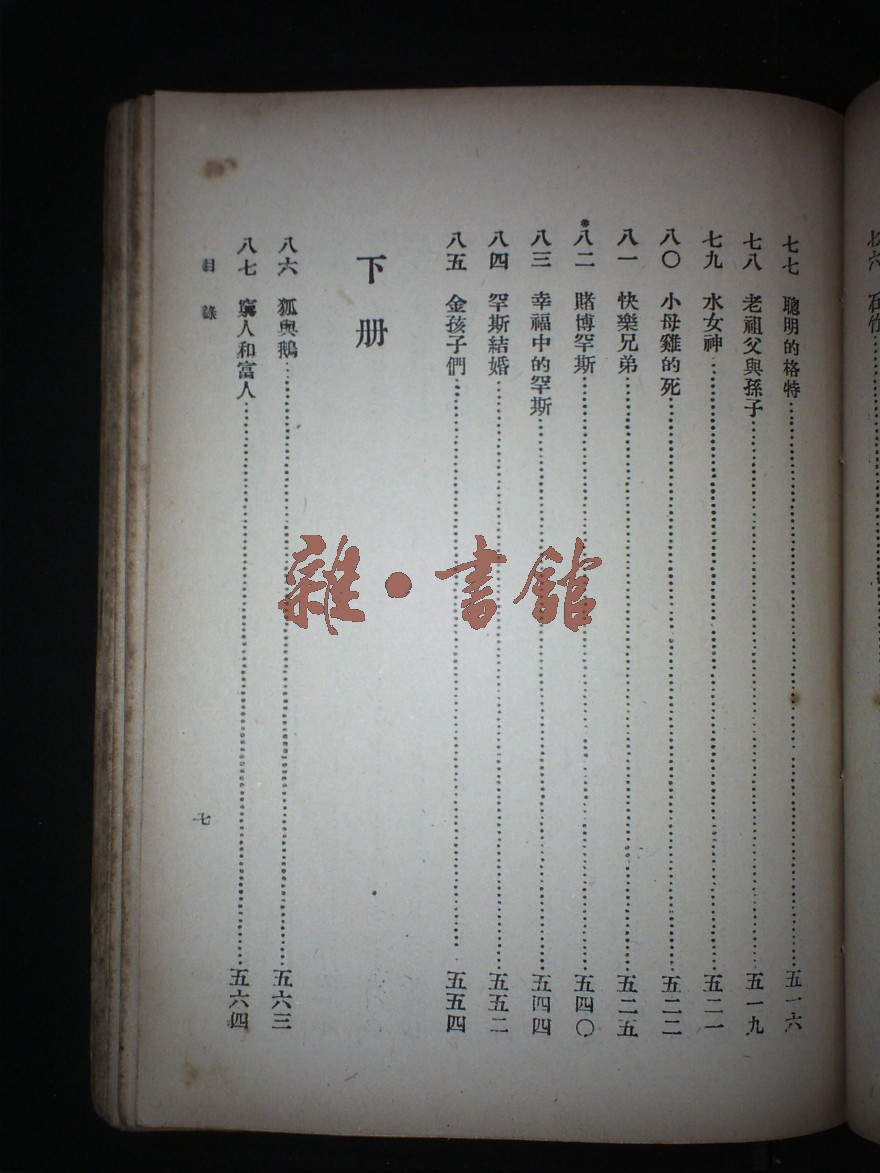 七六 石竹
七七 聰明的格特 五一六
七八 老祖父與孫子 五一九
七九 水女神 五二一
八〇 小母雞的死 五二二
八一 快樂兄弟 五二五
八二 賭博罕斯 五四〇
八三 幸福中的罕斯 五四四
八四 罕斯結婚 五五二
八五 金孩子們 五五四
下册
八六 狐與鵝 五六三
八七 窮人和富人 五六四
目錄
七
雜·書館